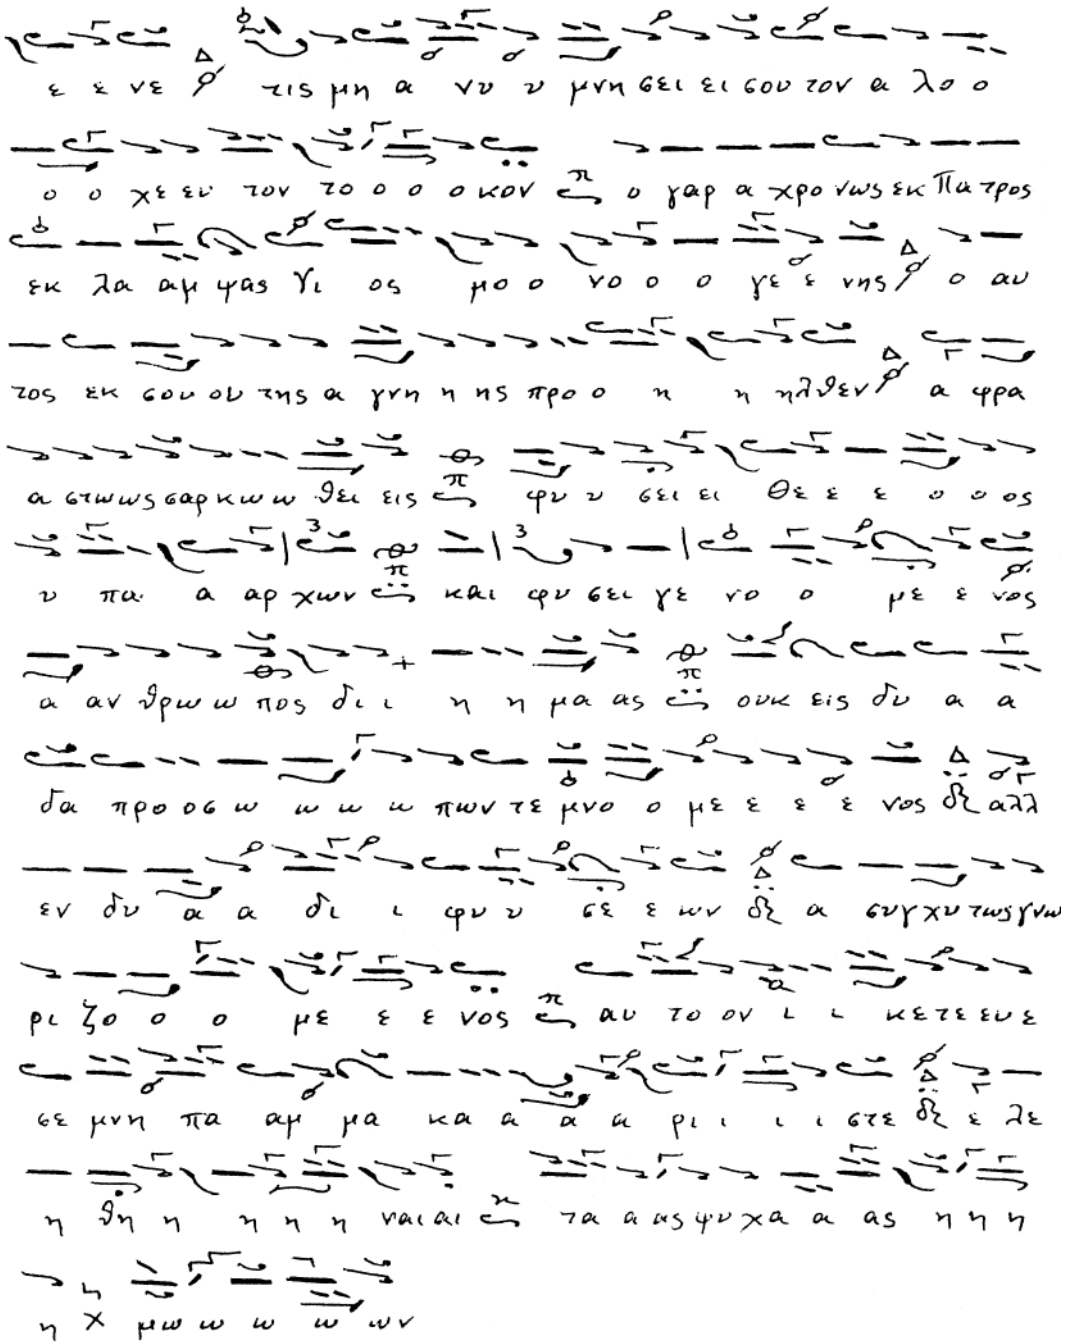 ε ε νε τις μη α νυ υ μνη σει ει σου τον α λο ο
ο ο χε ευ τον το ο ο ο κον ο γαρ α χρο νως εκ Πα τρος
εκ λα αμ ψας Υι ος μο ο νο ο ο γε ε νης ο αυ
τος εκ σου ου της α γνη η ης προ ο η η ηλθεν α φρα
α στω ως σαρ κω ω θει εις φυ υ σει ει Θε ε ε ο ο ος
υ πα α αρ χων και φυ σει γε νο ο με ε νος
α αν θρω ω πος δι ι η η μα ας ουκ εις δυ α α
δα προ οσ ω ω ω ω πων τε μνο ο με ε ε ε νος αλλ
εν δυ α α δι ι φυ υ σε ε ων α συγ χυ τως γνω
ρι ζο ο ο με ε ε νος αυ το ον ι ι κε τε ευ ε
σε μνη πα αμ μα κα α α α ρι ι ι ι στε ε λε
η θη η η η η ναι αι τα α ας ψυ χα α ας η η η
η μω ω ω ω ων